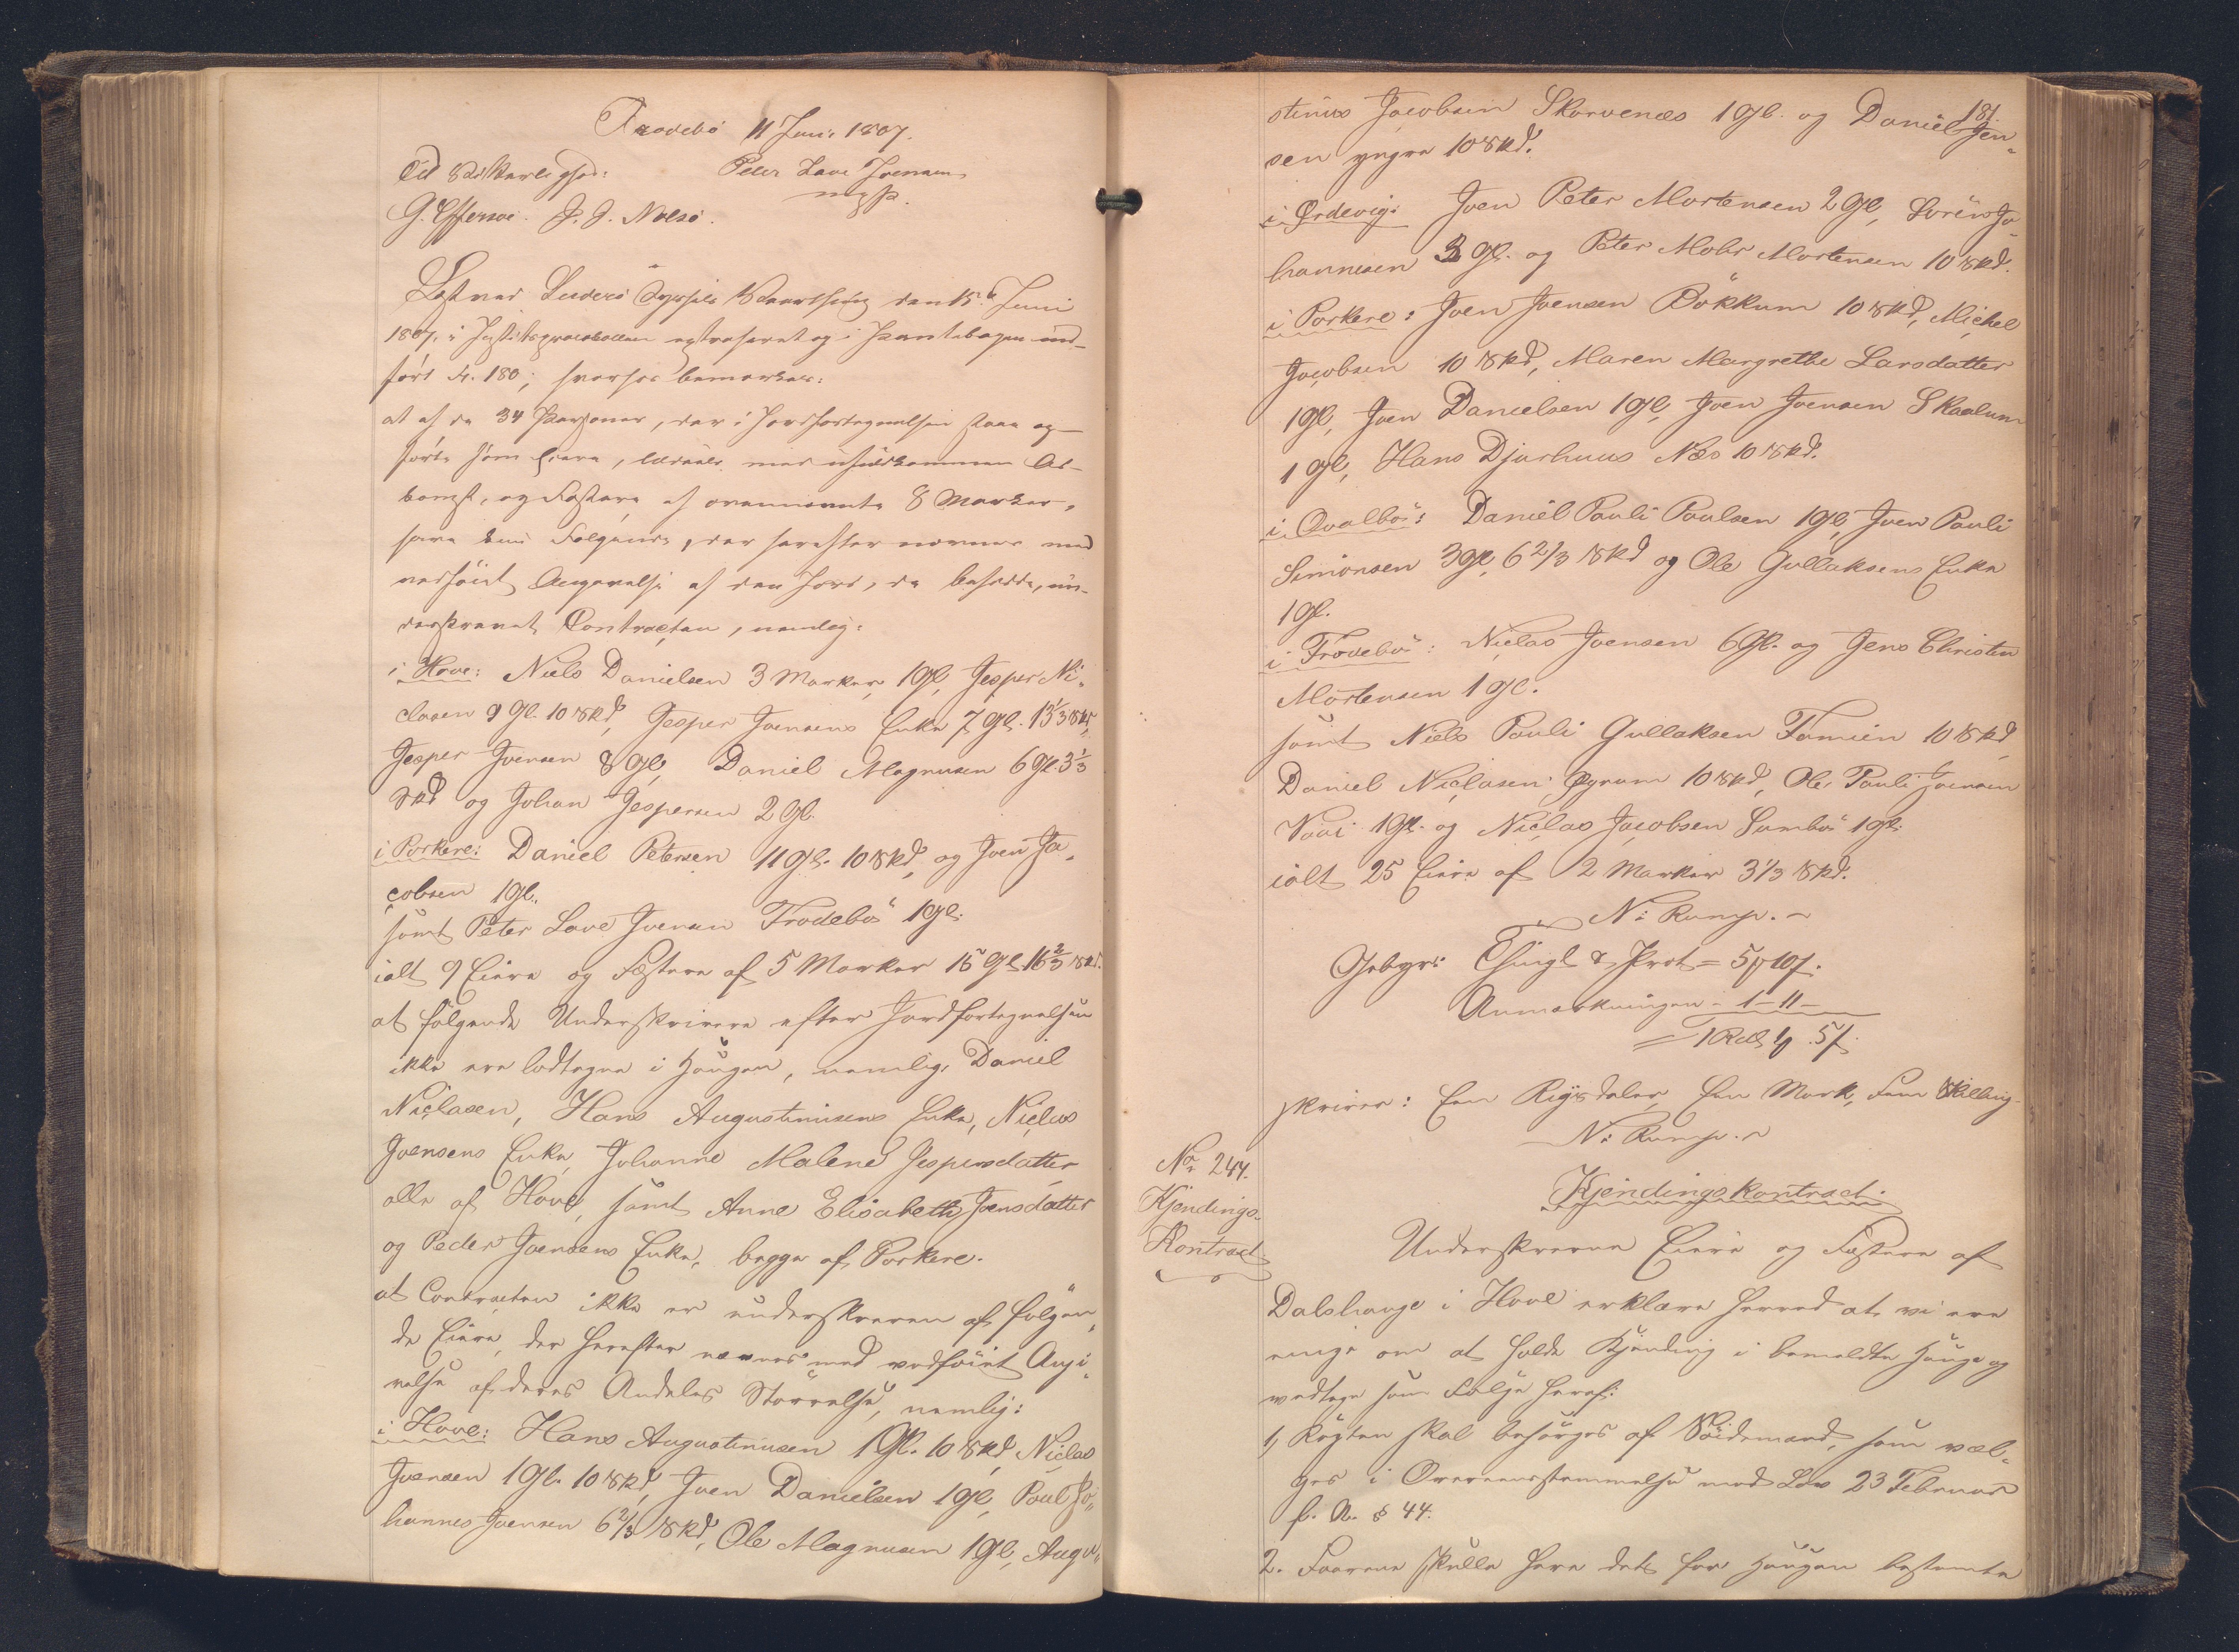 Frodebø 11 Juni 1867.
Til Vitterlighed: Peter Lave Joensen
m. f. P.
G. Effersøe. J. J. Nolsø.
Læst ved Suderø Syssels Vaarthing den 15de Juni
1867, i Justitsprotocollen extraheret og i Pantebogen ind-
ført Fr. 180; hvorhos bemærkes:
at af de 34 Personer, der i Jordfortegnelsen staae op-
førte som Eiere, tildeels med ufuldkommen Ad-
komst, og Fæstere af ovennævnte 8 Marker,
have kun Følgende, der herefter nævnes med
vedføiet Angivelse af den Jord, de besidde, un-
derskrevet Contracten, nemlig:
i Hove: Niels Danielsen 3 Marker 1 Gl, Jesper Ni-
clasen 9 Gl. 10 Skd, Jesper Joensens Enke 7 Gl. 13 1/3 Skd,
Jesper Joensen 8 Gl, Daniel Magnusen 6 Gl. 3 1/3
Skd og Johan Jespersen 2 Gl.
i Porkere: Daniel Petersen 11 Gl. 10 Skd, og Joen Ja-
cobsen 1 Gl.
samt Peter Lave Joensen Frodebø 1 Gl.
ialt 9 Eiere og Fæstere af 5 Marker 15 Gl 16 2/3 Skd.
at følgende Underskrivere efter Jordfortegnelsen
ikke ere lodtagne i Haugen, nemlig, Daniel
Niclasen, Hans Augustinusens Enke, Niclas
Joensens Enke, Johanne Malene Jespersdatter
alle af Hove, samt Anne Elisabeth Joensdatter
og Peder Joensens Enke, begge af Porkere.
at Contracten ikke er underskreven af følgen-
de Eiere, der herefter nævnes med vedføiet Angi-
velse af deres Andeles Størrelse, nemlig:
i Hove: Hans Augustinusen 1 Gl. 10 Skd, Niclas
Joensen 1 Gl. 10 Skd, Joen Danielsen 1 Gl, Poul Jo-
hannes Joensen 6 2/3 Skd, Ole Magnusen 1 Gl, Augu-
181.
stinus Jacobsen Skarvenæs 1 Gl. og Daniel Jen-
sen yngre 10 Skd.
i Ørdevig: Joen Peter Mortensen 2 Gl, Sørin Jo-
hannesen 3 Gl. og Peter Mohr Mortensen 10 Skd.
i Porkere: Joen Joensen Bökkum 10 Skd, Michel
Jacobsen 10 Skd, Maren Margrethe Larsdatter
1 Gl, Joen Danielsen 1 Gl, Joen Joensen Skaalum
1 Gl, Hans Djurhuus Næs 10 Skd.
i Qvalbø: Daniel Pauli Poulsen 1 Gl, Joen Pauli
Simonsen 3 Gl, 6 2/3 Skd og Ole Gullaksens Enke
1 Gl.
i Frodebø: Niclas Joensen 6 Gl. og Jens Christen
Mortensen 1 Gl.
samt Niels Pauli Gullaksen Famien 10 Skd,
Daniel Niclasen Øgrum 10 Skd, Ole Pauli Joensen
Vaai 1 Gl. og Niclas Jacobsen Sumbø 1 Gl.
ialt 25 Eiere af 2 Marker 3 1/3 Skd.
N: Rump.
Gebyr: Thingl & Prot = 5 ß 10 ƒ.
Anmærkningen - 1 - 11 -
= 1 Rdl 1 ß 5 ƒ.
skriver: Een Rigsdaler, Een Mark, Fem Skilling.
N: Rump.
No 244.
Kjendings-
Kontract
Kjendingskontract.
Underskrevne Eiere og Fæstere af
Dalshauge i Hove erklære herved at vi ere
enige om at holde Kjending i bemeldte Hauge og
vedtage som Følge heraf:
1, Røgten skal besørges af Røidemænd, som væl-
ges i Overeensstemmelse med Lov 23 Februar
f. A. § 44.
2. Faarene skulle have det for Haugen bestemte